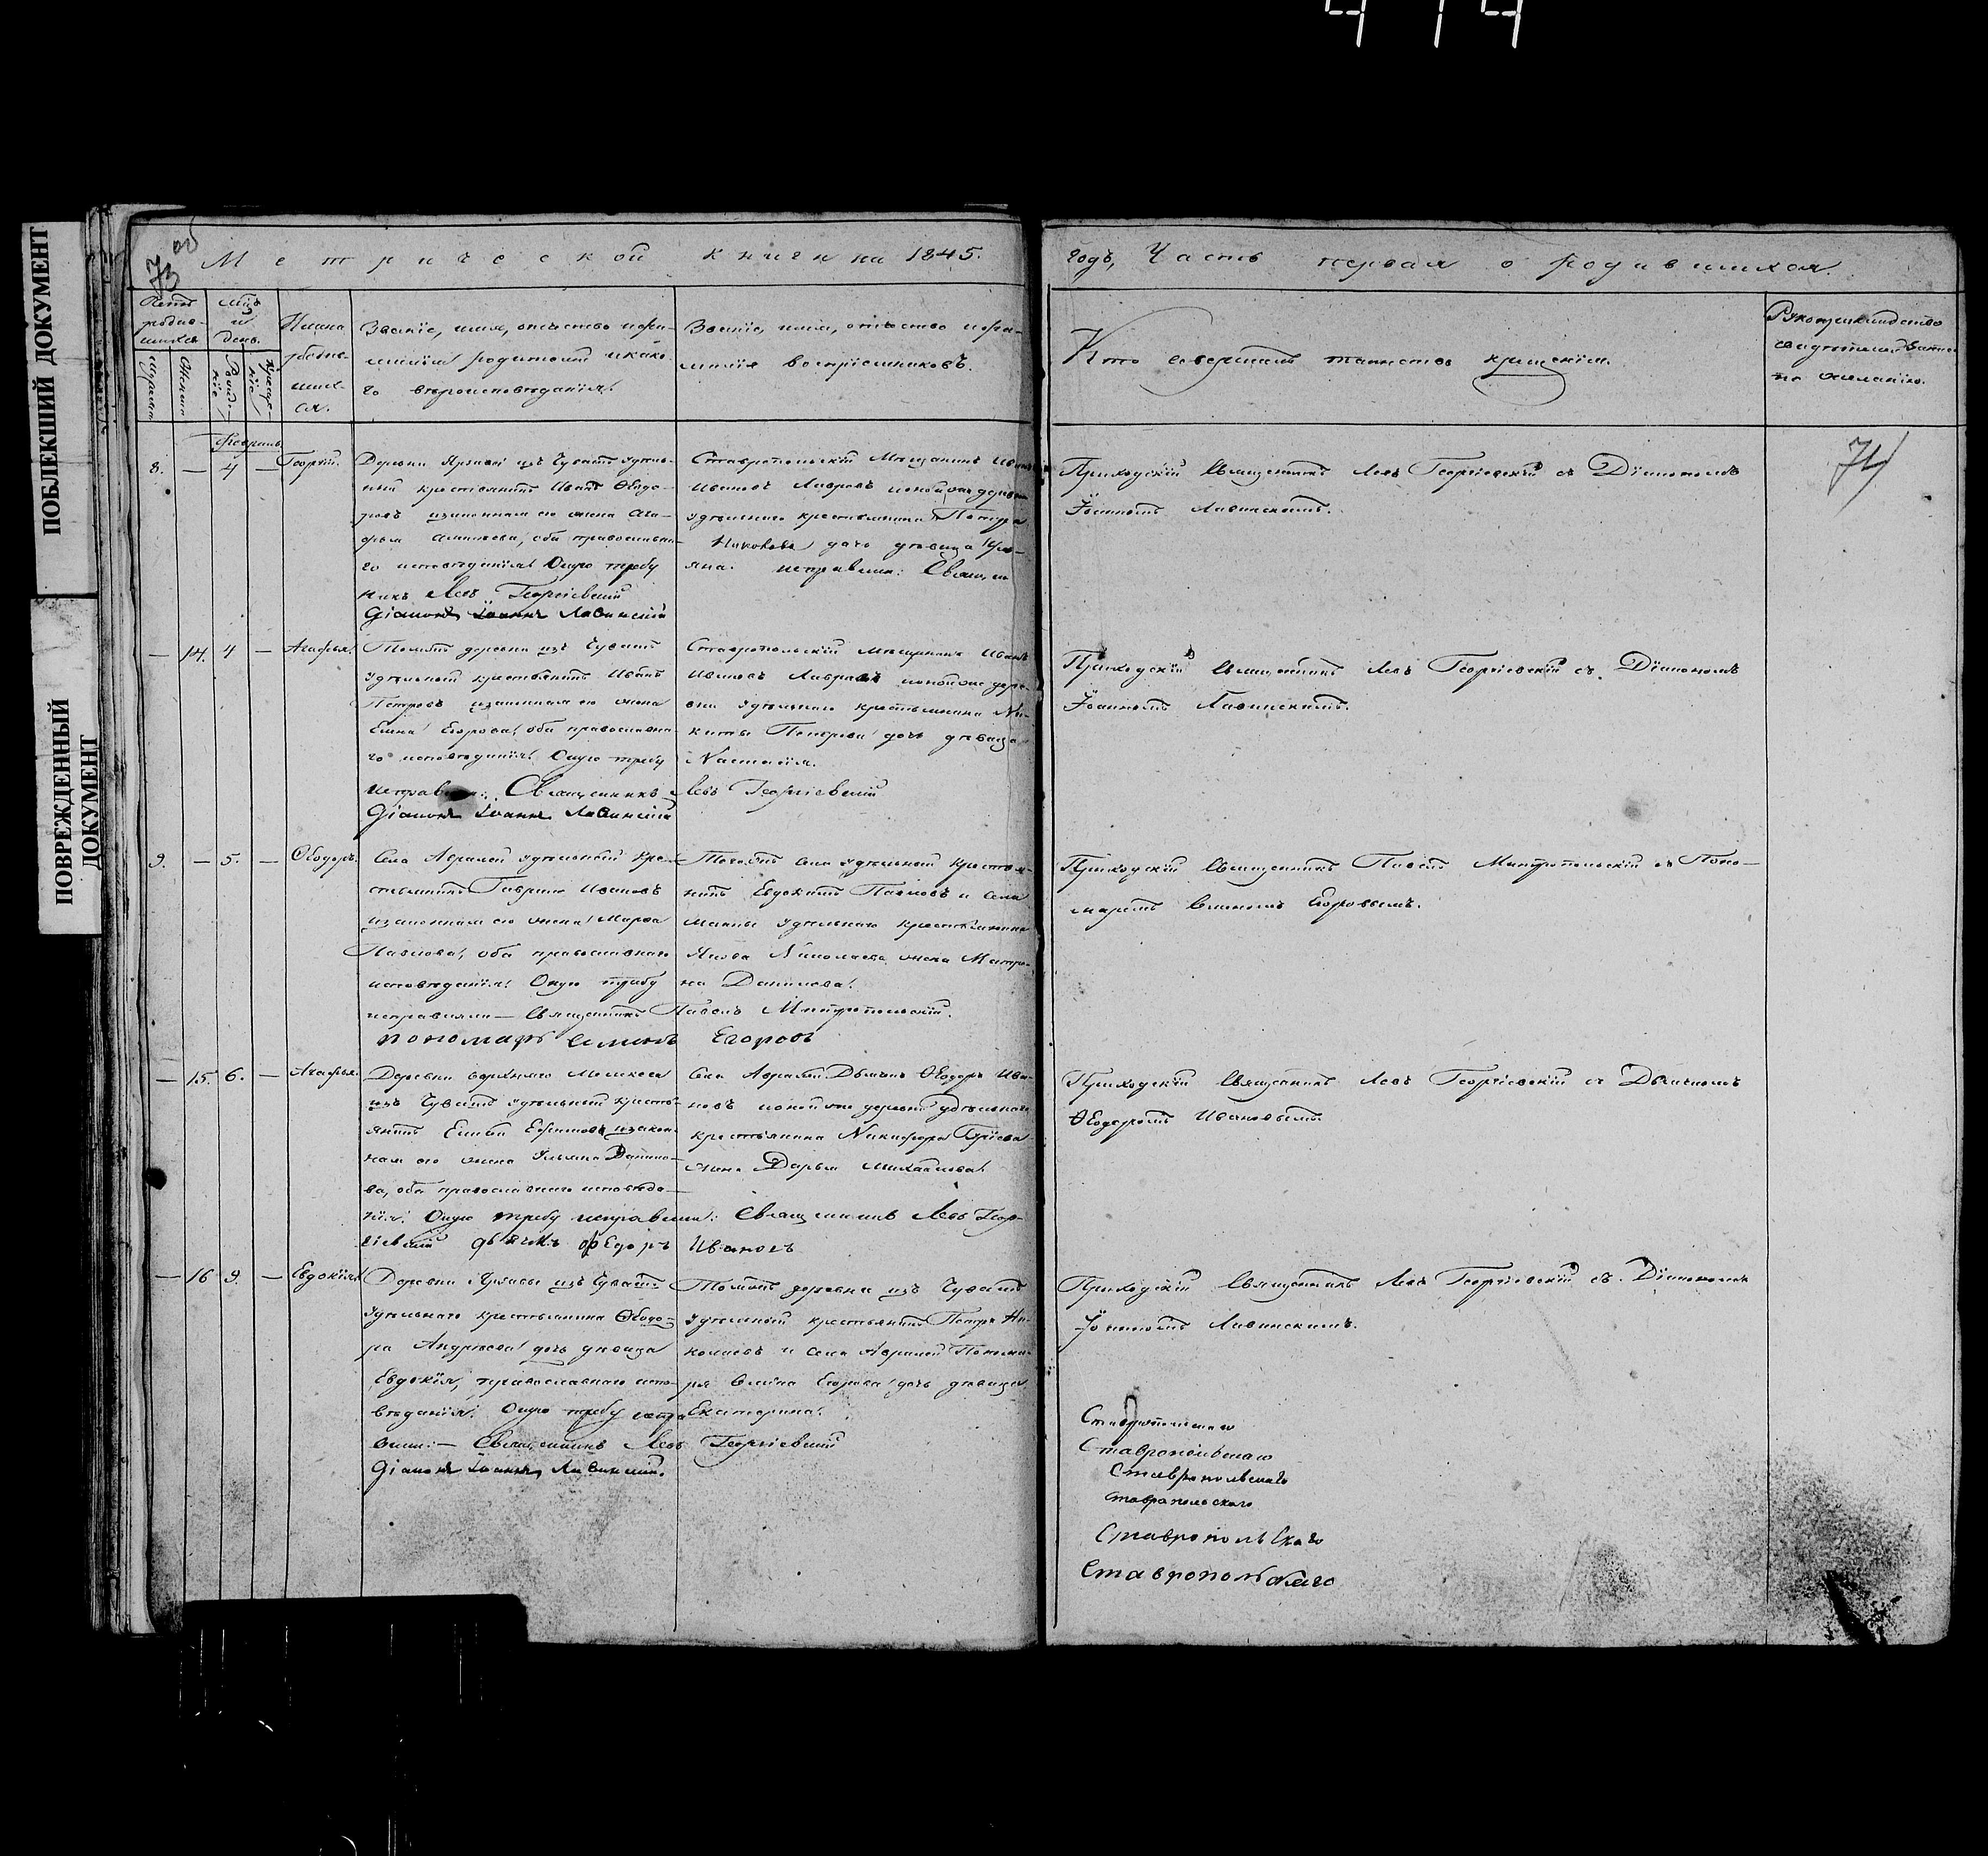 4 14
ПОБЛЕКШИЙ ДОКУМЕНТ
ПОВРЕЖДЕННЫЙ
ДОКУМЕНТ
73 об
Метрической книги на 1845.
годъ, Часть первая о родившихся.
Имена
родив-
ших-
ся.
Званіе, имя, отчество и фа-
милія родителей и како-
го вѣроисповѣданія.
Званіе, имя, отчество и фа-
милія воспріемниковъ.
Кто совершалъ таинство крещенія.
Рукоприкладство
свидѣтелей
по желанію.
74
Февраль
8. — 4 — Георгій.
изъ Чувашъ удѣль-
ный крестьянинъ Иванъ Ѳедо-
ровъ и законная его жена Ага-
фья оба православна-
го исповѣданія. Оную требу
никъ Левъ Георгіевскій
Діаконъ Іоаннъ Лавинскій
Ставропольскій Мѣщанинъ Иванъ
Ивановъ Лавровъ и оной же деревни
удѣльнаго крестьянина Петра
дочь дѣвица Улья-
яна. исправили: Священ
Приходскій Священникъ Левъ Георгіевскій съ Діакономъ
Іоанномъ Лавинскимъ.
— 14. 4 — Агафья.
Той же деревни изъ Чувашъ
удѣльный крестьянинъ Иванъ
Петровъ и законная его жена
Елена Егорова, оба православна-
го исповѣданія. Оную требу
исправили: Священникъ Левъ Георгіевскій
Діаконъ Іоаннъ Лавинскій
Ставропольскій Мѣщанинъ Иванъ
Ивановъ Лавровъ и оной же дере-
вни удѣльнаго крестьянина Ни-
киты Петрова дочь дѣвица
Настасія.
Приходскій Священникъ Левъ Георгіевскій съ Діакономъ
Іоанномъ Лавинскимъ.
9. — 5. — Ѳеодоръ.
Села Авралей удѣльный кре-
стьянинъ Гаврило Ивановъ
и законная его жена Марѳа
Павлова, оба православнаго
исповѣданія. Оную требу
исправили — Священникъ Павелъ Митропольскій.
пономарь Семенъ Егоровъ
Того же села удѣльный крестья-
нинъ Евдокимъ Павловъ и села
удѣльнаго крестьянина
Якова Николаева жена Матре-
на Данилова.
Приходскій Священникъ Павелъ Митропольскій съ Поно-
маремъ Семеномъ Егоровымъ.
— 15. 6. — Агафья.
Деревни верхняго Мелекеса
изъ Чувашъ удѣльный кресть-
янинъ Ефимовъ и закон-
ная его жена Ульяна Данило-
ва, оба православнаго исповѣда-
нія. Оную требу исправили: Священникъ Левъ Геор-
гіевскій дьячекъ Ѳедоръ Ивановъ
Села Авралей Дьячекъ Ѳеодоръ Ива-
новъ и оной же деревни удѣльнаго
крестьянина Никифора
жена Дарья Михайлова.
Приходскій Священникъ Левъ Георгіевскій съ Дьячкомъ
Ѳеодоромъ Ивановымъ.
— 16 9. — Евдокія.
изъ Чувашъ
удѣльнаго крестьянина Ѳеодо-
ра Андреева дочь дѣвица
Евдокія, православнаго испо-
вѣданія. Оную требу испра
вили: — Священникъ Левъ Георгіевскій
Діаконъ Іоаннъ Лавинскій.
Той же деревни изъ Чувашъ
удѣльный крестьянинъ Петръ Ни-
колаевъ и села Авралей Понома-
ря Семена Егорова дочь дѣвица
Екатерина.
Приходскій Священникъ Левъ Георгіевскій съ Діакономъ
Іоанномъ Лавинскимъ.
Ставропольскаго
Ставропольскаго
Ставропольскаго
Ставропольскаго
Ставропольскаго
Ставропольскаго